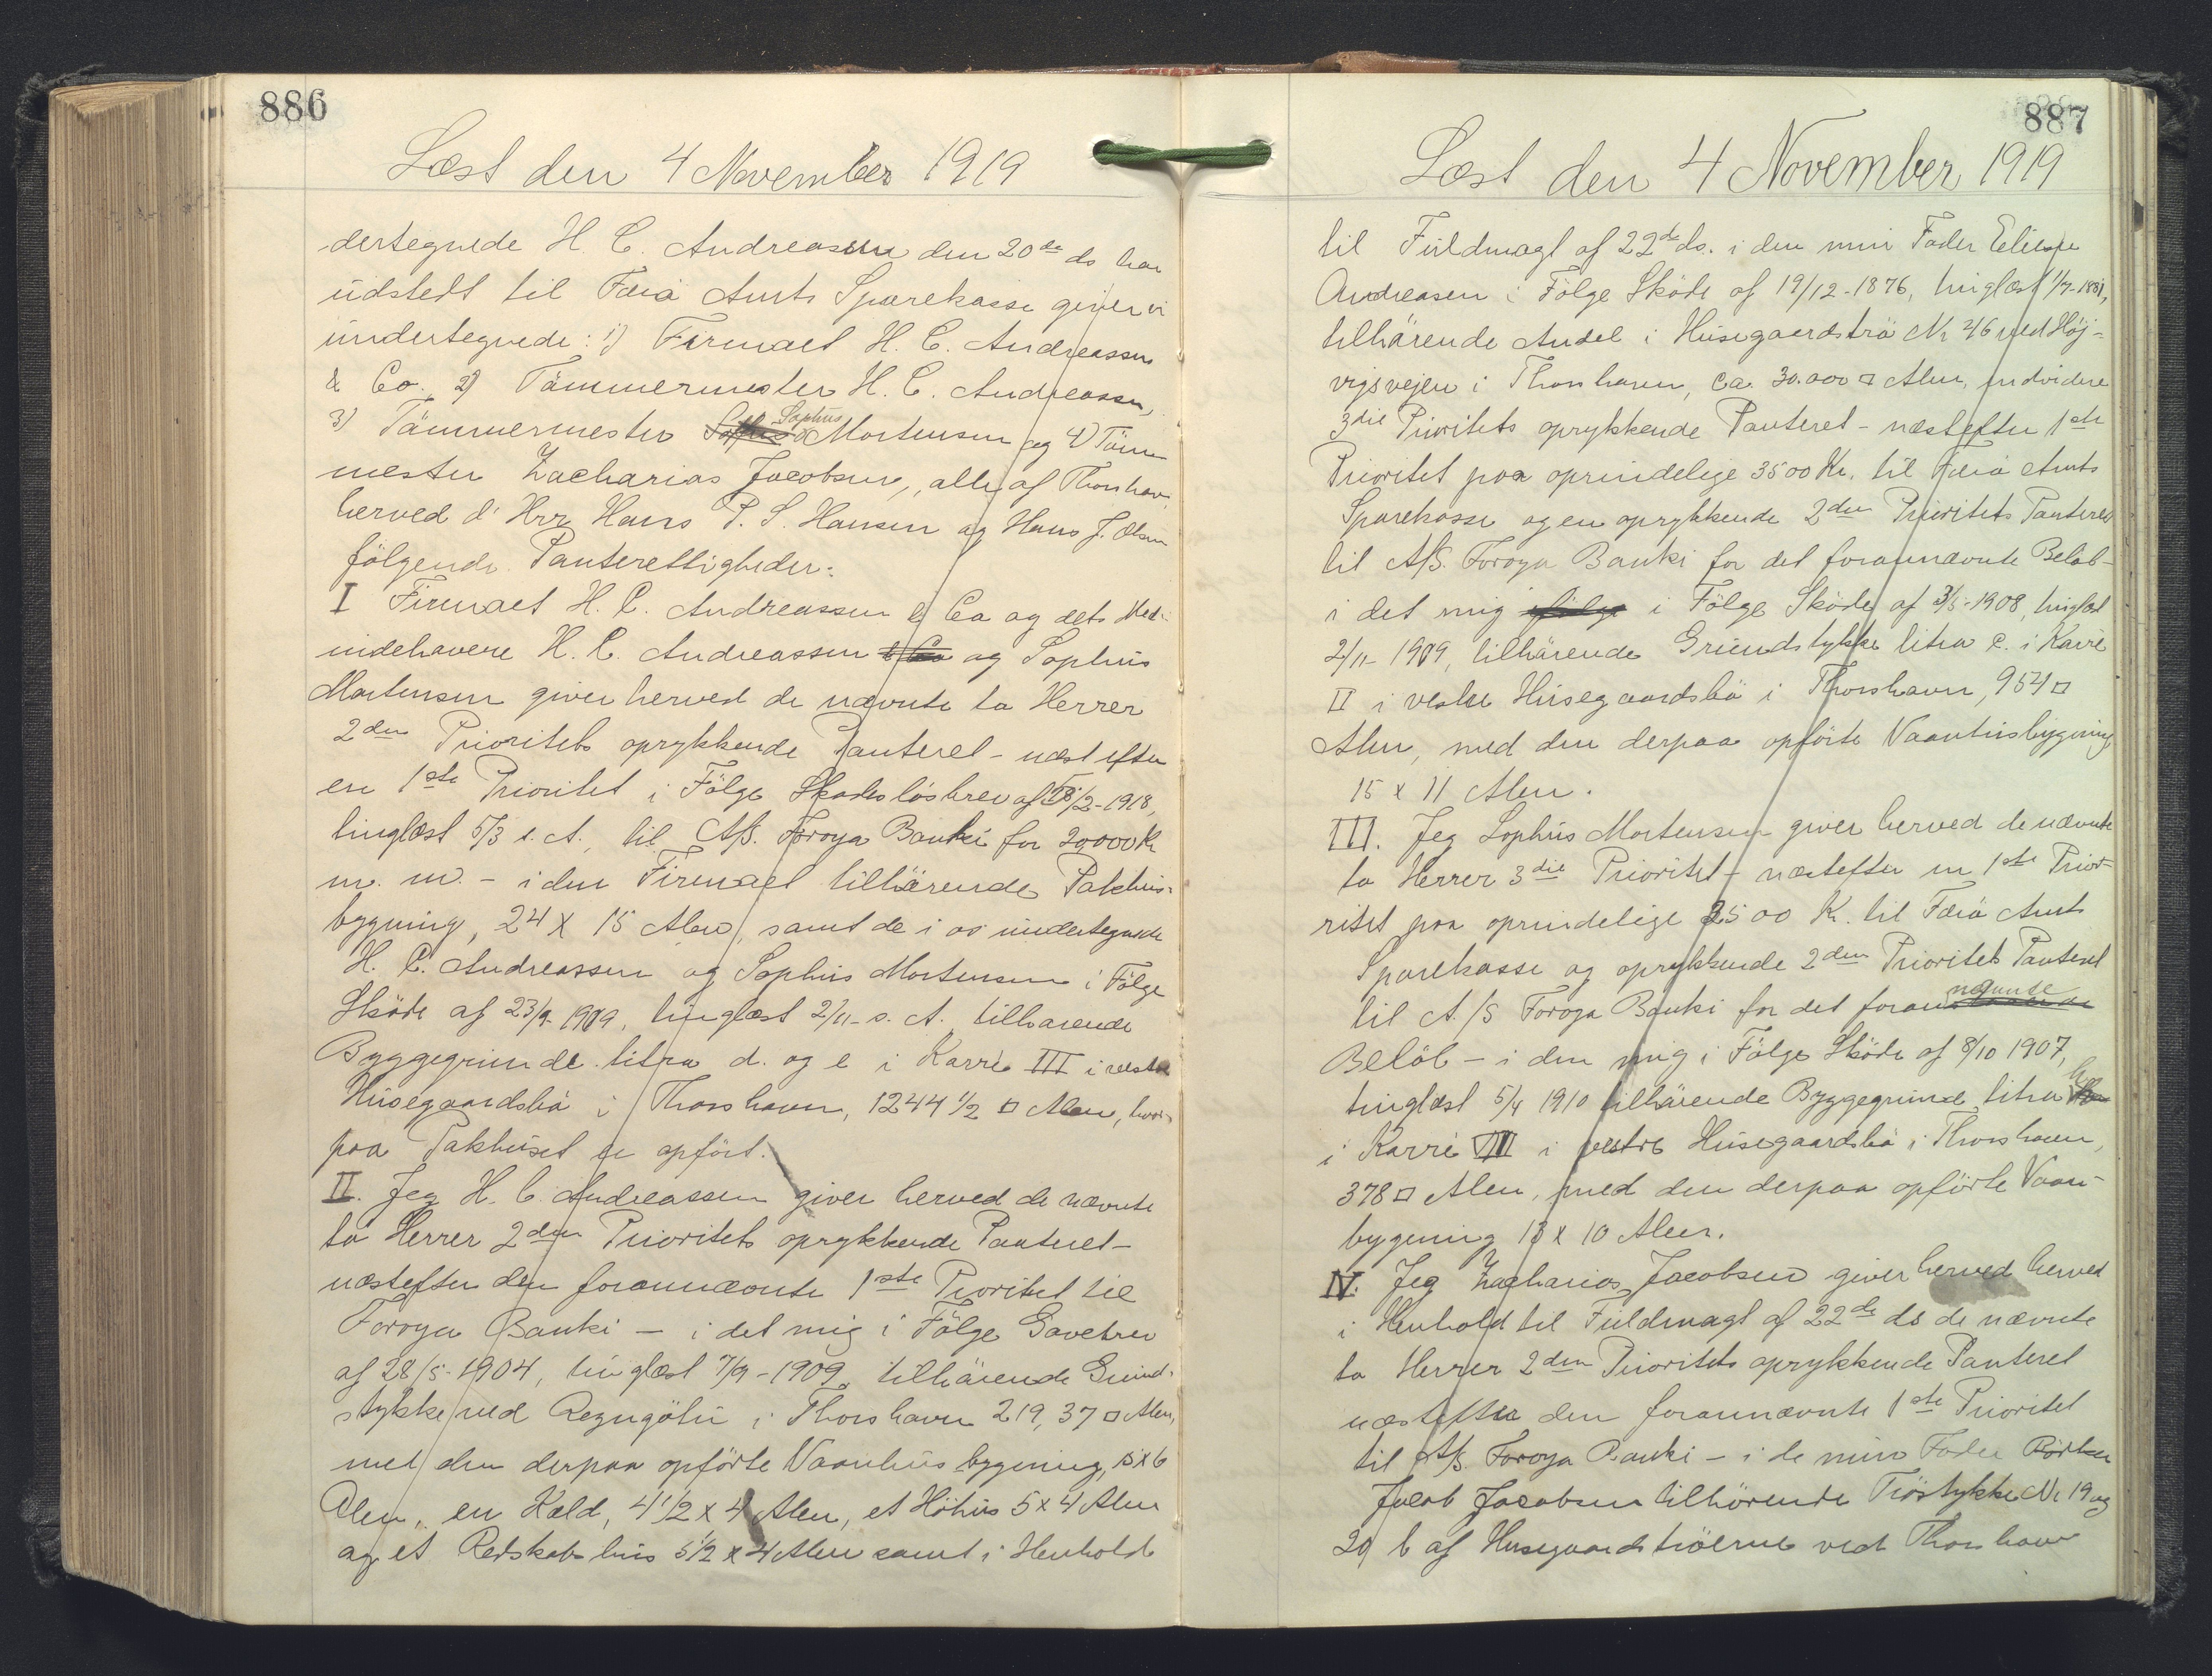 886
Læst den 4 November 1919
dertegnede H. C. Andreassen den 20de ds har
udstedt til Færø Amts Sparekasse giver vi
undertegnede: 1) Firmaet H. C. Andreassen
& Co. 2) Tömmermester H. C. Andreassen,
3) Tömmermester Sophus Mortensen og 4) Tömmer
mester Zacharias Jacobsen, alle af Thorshavn,
herved d'Hrr Hans P. S. Hansen og Hans J. Olsen
fölgende Panterettigheder:
I Firmaet H. C. Andreassen & Co og dets Med-
indehavere H. C. Andreassen & Co og Sophus
Mortensen giver herved de nævnte to Herrer
2den Prioritets oprykkende Panteret – næst efter
en 1ste Prioritet i Fölge Skadeslösbrev af 18/2-1918,
tinglæst 5/3 s. A., til A/S. Foroya Banki for 20,000 Kr
m. m. – i den Firmaet tilhørende Pakhus-
bygning, 24 x 15 Alen, samt de i os undertegnede
H. C. Andreassen og Sophus Mortensen i Fölge
Sköde af 23/9-1909, tinglæst 2/11-s. A. tilhørende
Byggegrunde litra d. og e i Karré III i vestre
Húsegaardsbö i Thorshavn, 1244 1/2 □ Alen, hvor-
paa Pakhuset er opfört.
II. Jeg H. C. Andreassen giver herved de nævnte
to Herrer 2den Prioritets oprykkende Panteret –
næstefter den forannævnte 1ste Prioritet til
Foroya Banki – i det mig i Fölge Gavebrev
af 28/5-1904, tinglæst 7/9-1909, tilhørende Grund-
stykke ved Reyngötu i Thorshavn 219,37 □ Alen,
med den derpaa opförte Vaanhusbygning, 15 x 6
Alen, en Kæld, 4 1/2 x 4 Alen, et Höhus 5 x 4 Alen
og et Redskabshus 5 1/2 x 4 Alen samt i Henhold
887
Læst den 4 November 1919
til Fuldmagt af 22de ds. i den min Fader Eliesse
Andreasen i Fölge Sköde af 19/12-1876, tinglæst 1/7-1881,
tilhørende Andel i Húsegaardströ Nr 46 ved Höj-
vigsvejen i Thorshavn, ca. 30.000 □ Alen, endvidere
3die Prioritets oprykkende Panteret – næstefter 1ste
Prioritet paa oprindelige 3500 Kr. til Færø Amts
Sparekasse og en oprykkende 2den Prioritets Panteret
til A/S. Foroya Banki for det forannævnte Beløb –
i det mig ifölge i Fölge Sköde af 3/5-1908, tinglæst
2/11-1909, tilhørende Grundstykke litra c. i Karré
II i vestre Húsegaardsbö i Thorshavn, 954 □
Alen, med den derpaa opförte Vaanhusbygning
15 x 11 Alen.
III. Jeg Sophus Mortensen giver herved de nævnte
to Herrer 3die Prioritet – næstefter en 1ste Prior-
ritet paa oprindelige 2500 Kr. til Færø Amts
Sparekasse og oprykkende 2den Prioritets Panteret
til A/S Foroya Banki for det forannævnte
Belöb – i den mig i Fölge Sköde af 8/10 1907,
tinglæst 5/4 1910 tilhørende Byggegrund litra h
i Karré VII i vestre Húsegaardsbö i Thorshavn,
378 □ Alen, med den derpaa opförte Vaan-
bygning 13 x 10 Alen.
IV. Jeg Zacharias Jacobsen giver herved herved
i Henhold til Fuldmagt af 22de ds de nævnte
to Herrer 2den Prioritets oprykkende Panteret
næstefter den forannævnte 1ste Prioritet
til A/S. Foroya Banki – i de min Fader
Jacob Jacobsen tilhörende Tröstykke Nr 19 og
20 b af Husegaardströerne ved Thorshavn